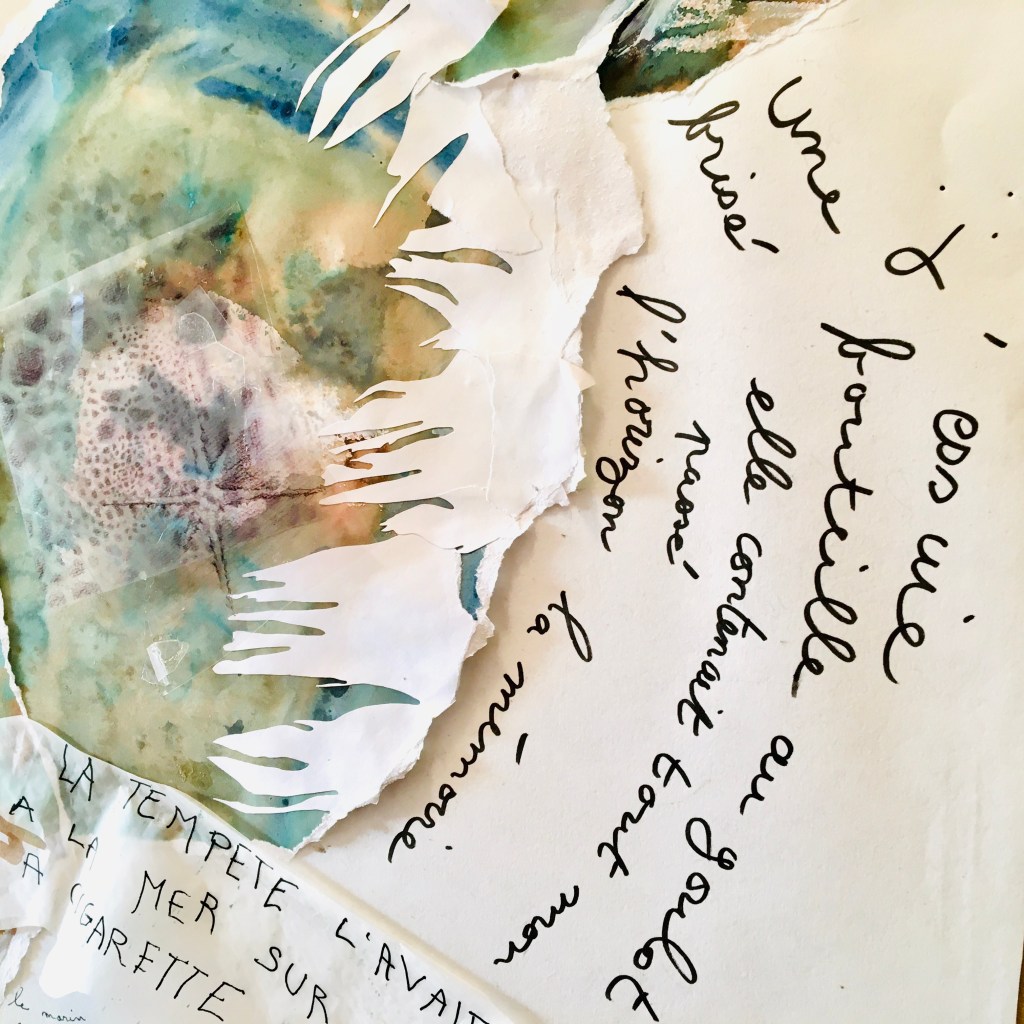 j'essuie
Une bouteille au goulot
brisé elle contenait tout mon
passé
l'horizon la mémoire
LA TEMPETE L'AVAIT
A LA MER SUR
A CIGARETTE
le marin